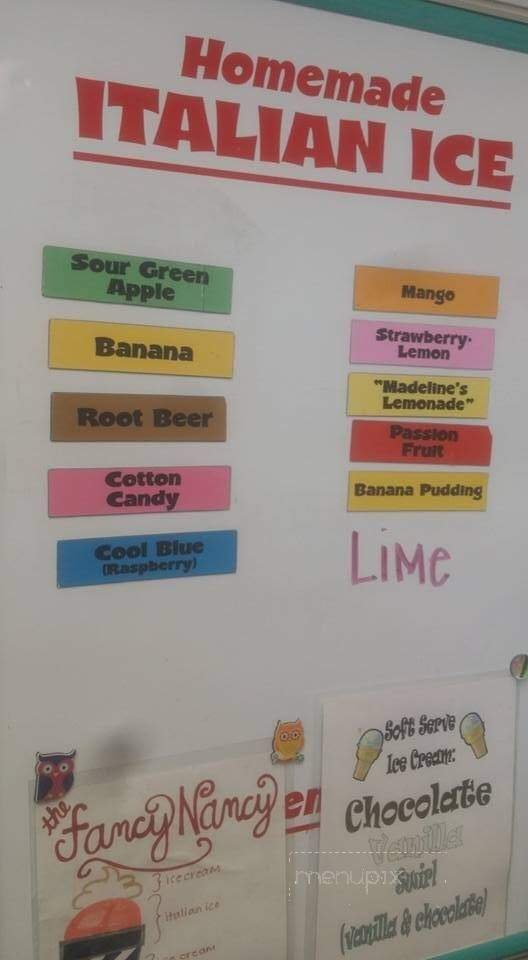 Homemade
ITALIAN ICE
Sour Green
Apple
Banana
Root Beer
Cotton
Candy
Cool Blue
(Raspberry)
Mango
Strawberry-
Lemon
"Madeline's
Lemonade"
Passion
Fruit
Banana Pudding
Lime
the
Fancy Nancy
ice cream
italian ice
Soft Serve
Ice Cream:
Chocolate
Vanilla
Swirl
(vanilla & chocolate)
menupix